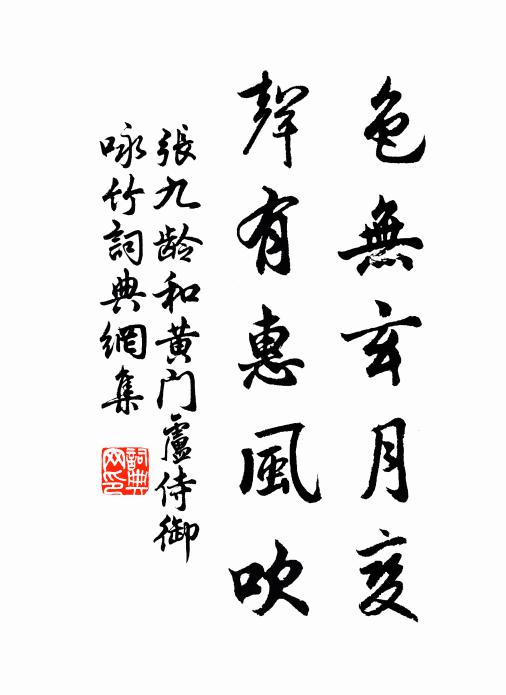 色無玄月變
聲有惠風吹
張九齡和黄门盧侍御
咏竹詞典網集
詞典网印